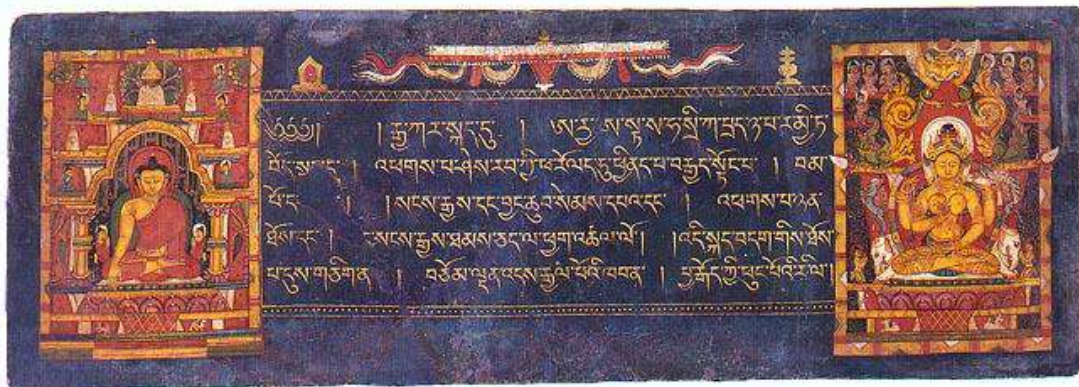 ༄༅༅། །རྒྱ་ཀར་སྐད་དུ། ཨརྱ་ས་སྟ་ས་ཧ་སྲི་ཀ་པྲད་ཉ་པ་ར་མྱི་ཏ
བོད་སྐད་དུ། འཕགས་པ་ཤེས་རབ་ཀྱི་ཕ་རོལ་དུ་ཕྱིན་པ་བརྒྱད་སྟོང་པ། བམ་
པོ་དང་ །སངས་རྒྱས་དང་བྱང་ཆུབ་སེམས་དཔའ་དང་། འཕགས་པ་ཉན་
ཐོས་དང་། སངས་རྒྱས་ཐམས་ཅད་ལ་ཕྱག་འཚལ་ལོ། །འདི་སྐད་བདག་གིས་ཐོས་
པ་དུས་གཅིག་ན། བཅོམ་ལྡན་འདས་རྒྱལ་པོའི་ཁབ་ན་ བྱ་རྒོད་ཀྱི་ཕུང་པོའི་རི་ལ།